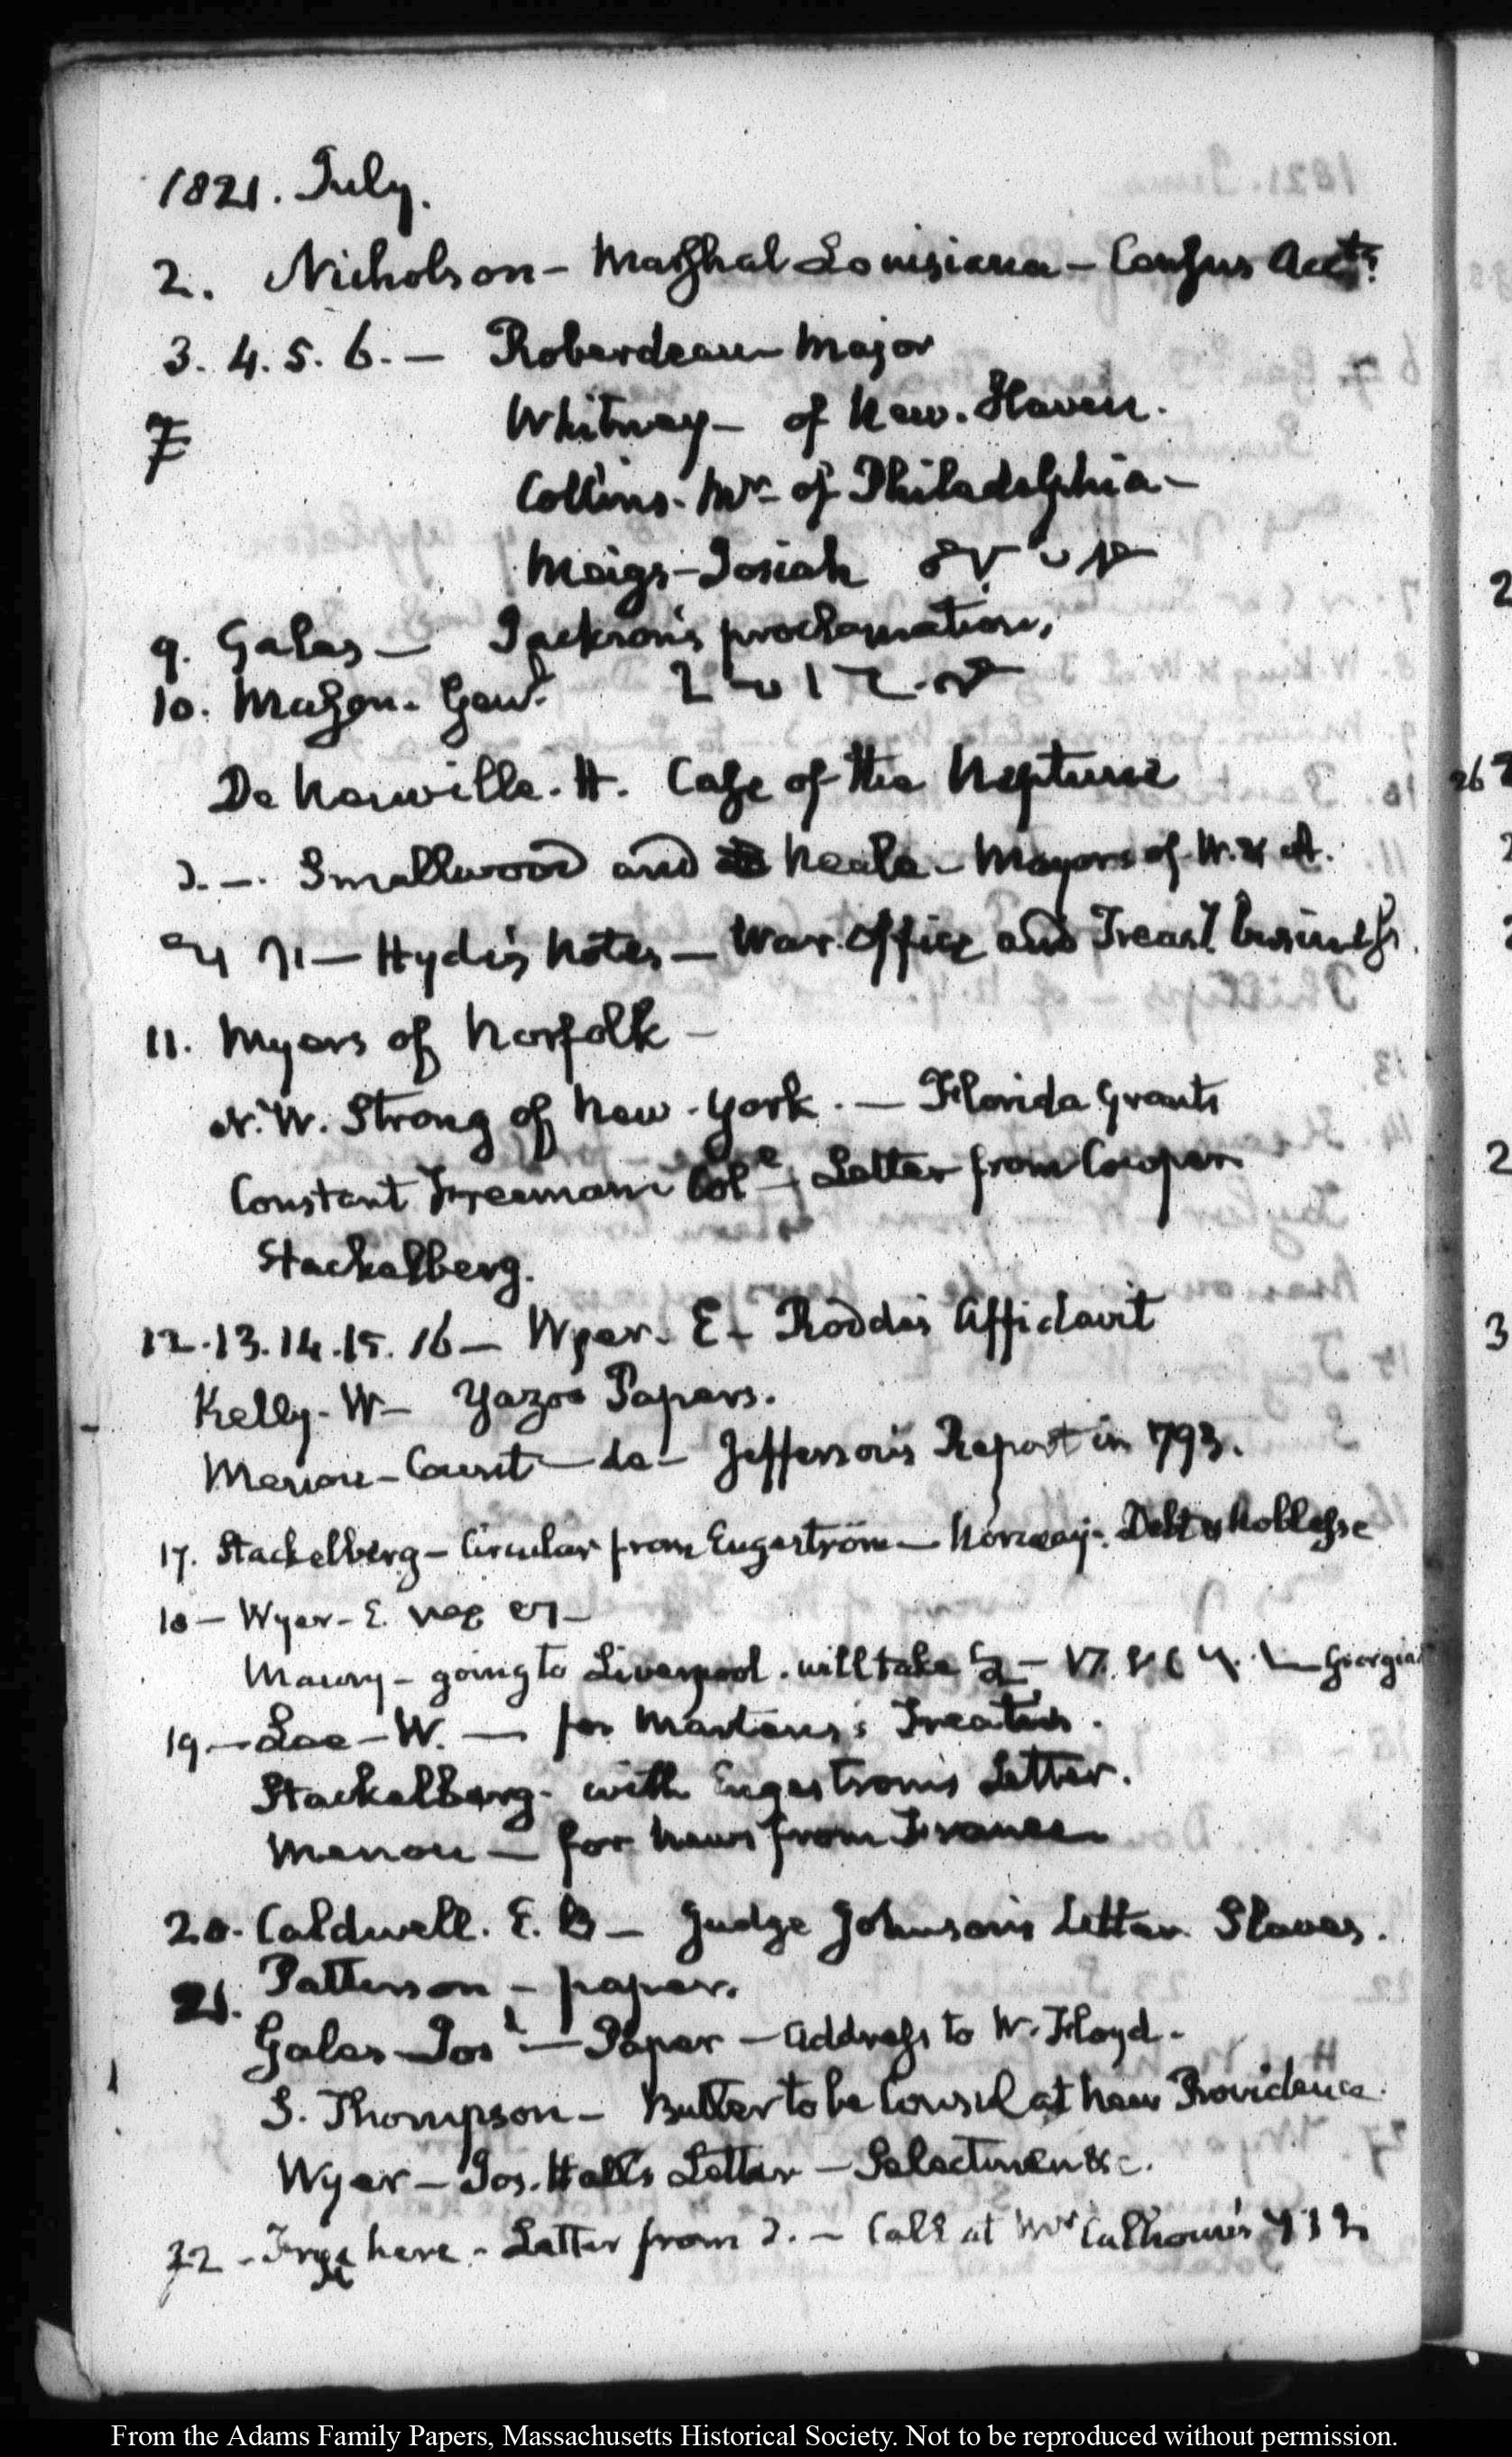 1821. July.
2. Nicholson – Marshal Louisiana – Census Accts.
3. 4. 5. 6. – Roberdeau Major
7 Whitney – of New-Haven.
Collins. Mr. of Philadelphia –
Meigs – Josiah
9. Gales – Jackson's proclamation,
10. Mason. Genl.
De Neuville. H. Case of the Neptune
Smallwood and Neale – Mayors of W. & A.
– Hyde's Notes – War Office and Treasy business.
11. Myers of Norfolk –
N. W. Strong of New-York. – Florida Grants
Constant Freeman Col – Letter from Cowper
Stackelberg.
12. 13. 14. 15. 16 – Wyer – E – Rodde's Affidavit
Kelly – W – Yazoo Papers.
Menou – Count – de – Jefferson's Report in 1793.
17. Stackelberg – Circular from Engeström – Norway. Debt & Noblesse
18 – Wyer – E.
Maury – going to Liverpool. will take – Georgia
19 – Lee – W. – for Martens's Treaties.
Stackelberg – with Engestrom's Letter.
Menou – for News from France
20. Caldwell. E. B – Judge Johnson's Letter. Slaves.
21. Patterson – paper.
Gales Jos – Paper – Address to W. Floyd.
S. Thompson – Butler to be Consul at New Providence.
Wyer – Jos. Hall's Letter – Selectmen &c.
22 – Frye here. – Letter from – Call at Mr Calhoun's
From the Adams Family Papers, Massachusetts Historical Society. Not to be reproduced without permission.